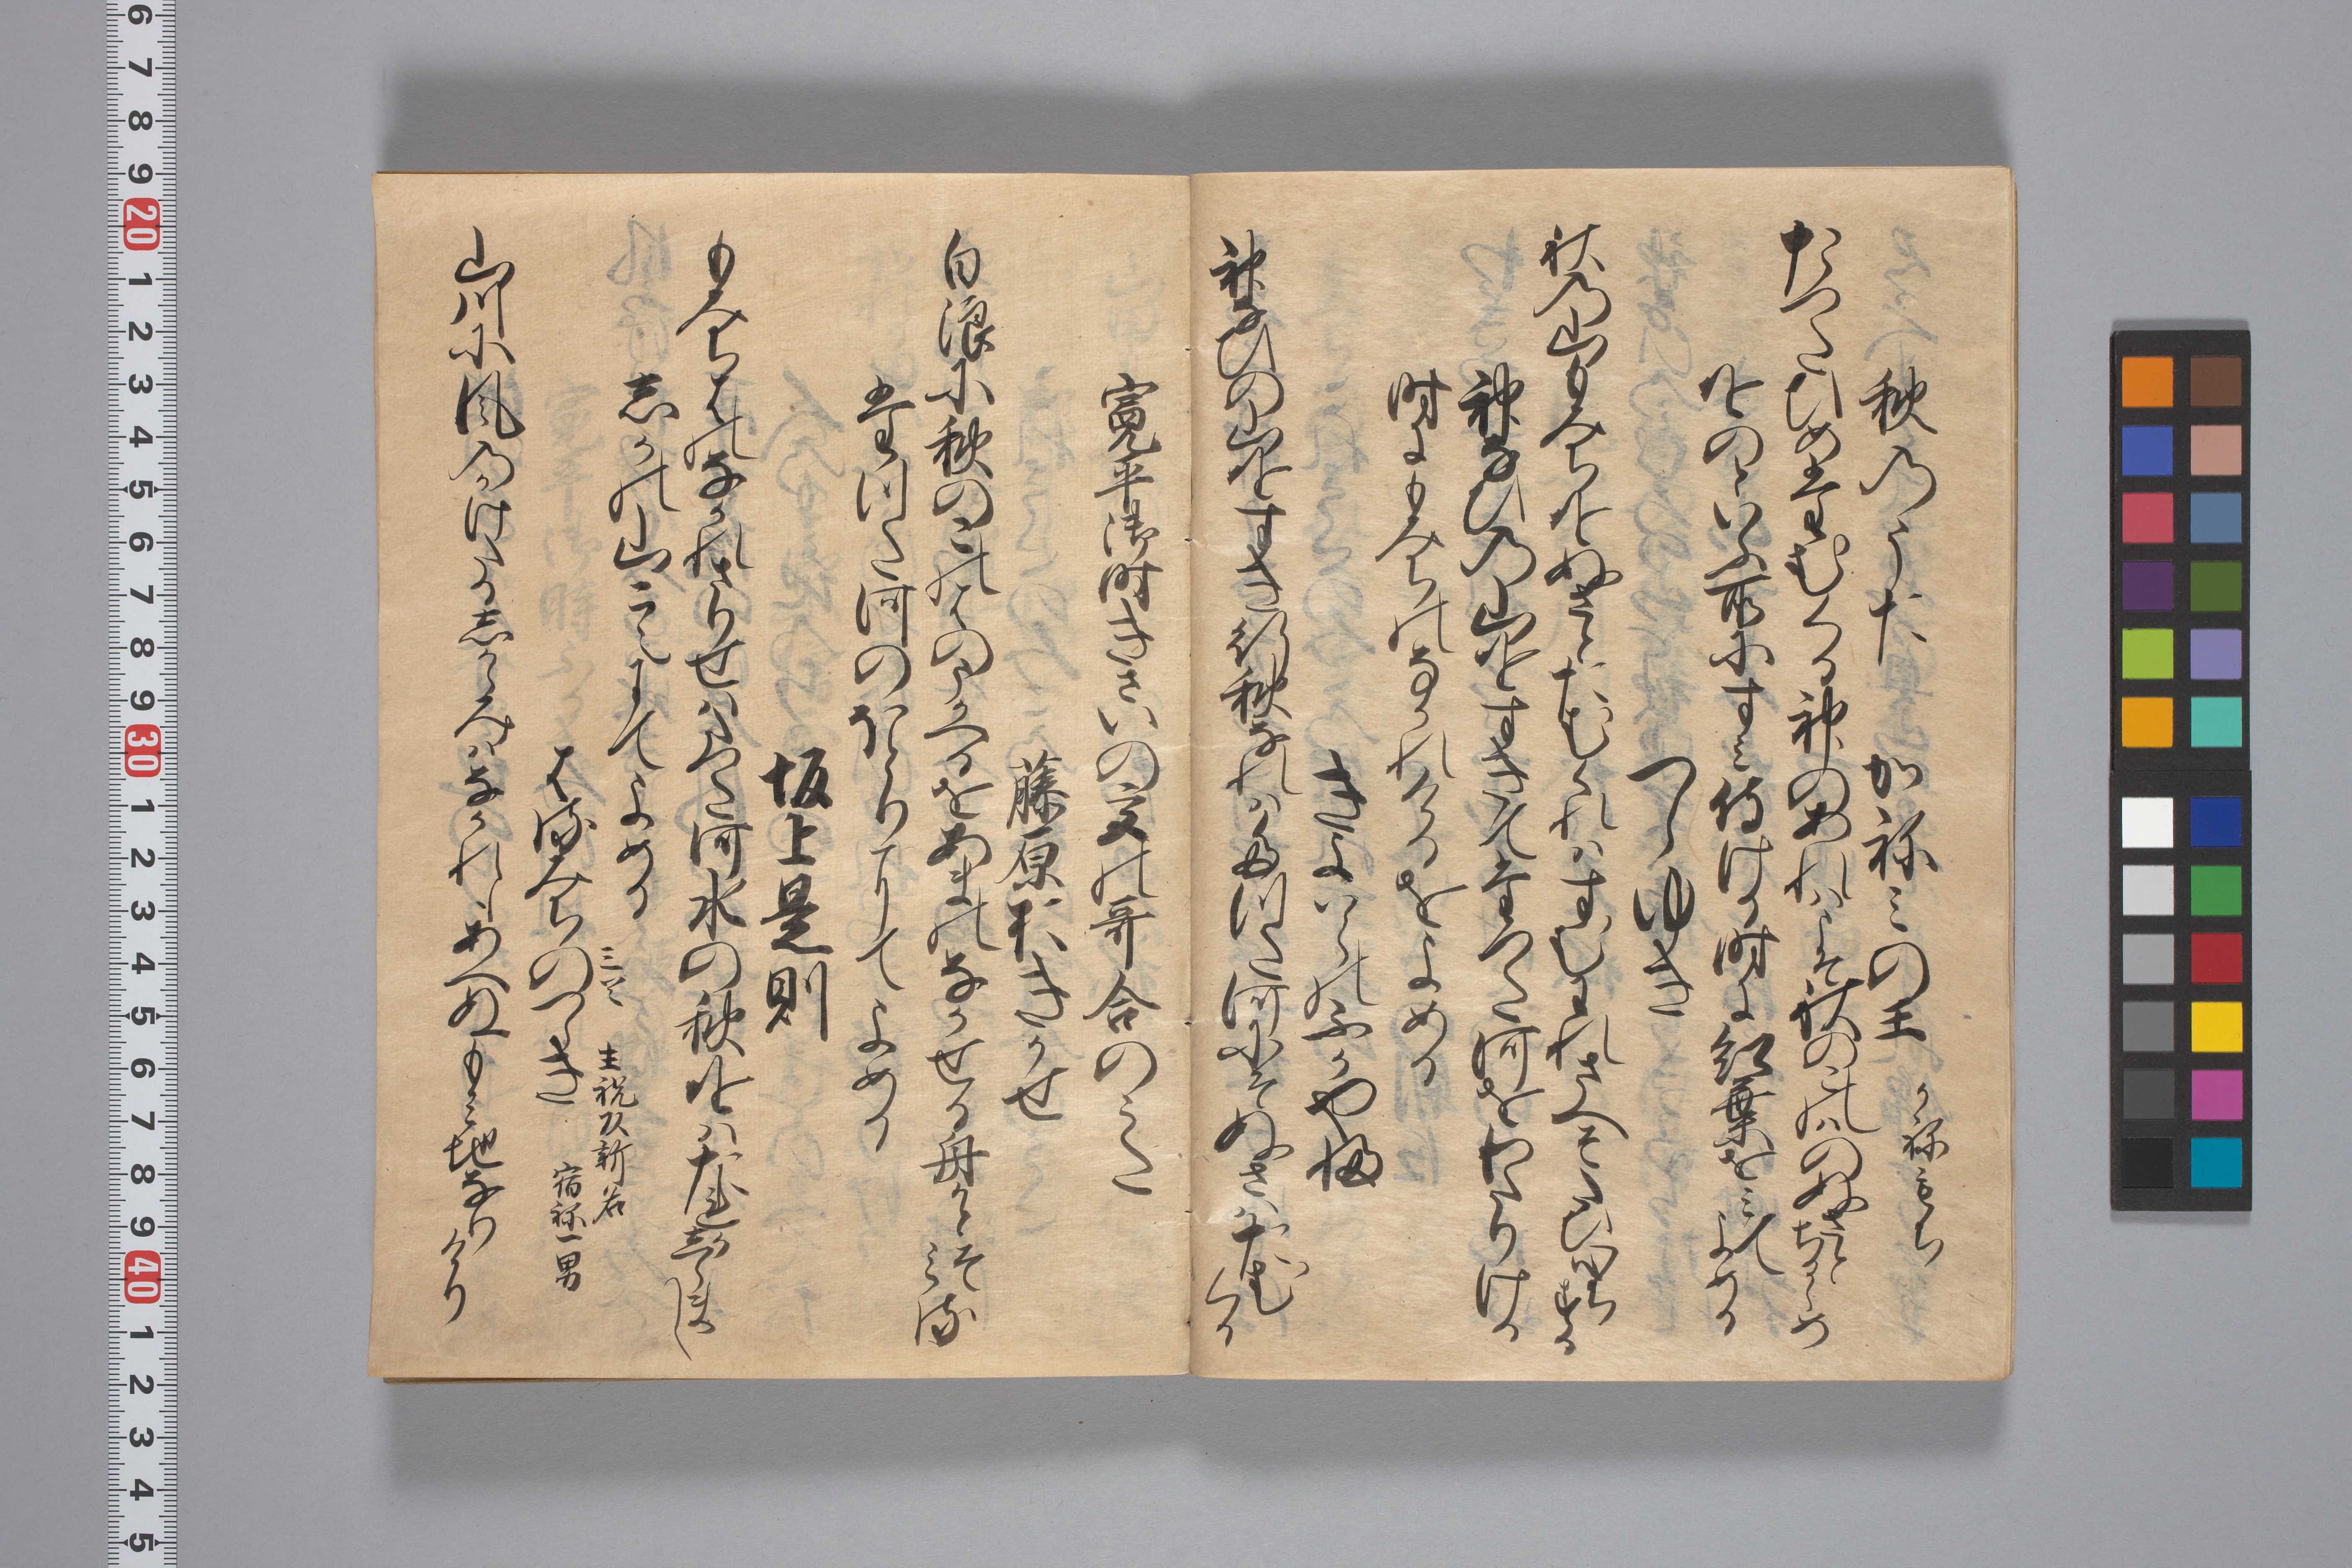 秋乃うた
かねみの王
かねみのおほきみ
たつたひめたむくる神のあれはこそ秋のこのはのぬさとちるらめ
をのといふ所にすみ侍ける時に紅葉をみてよめる
つらゆき
秋乃山もみちをぬさとたむくれはすむわれさへそたひ心ちする
神なひ乃山をすきてたつた河をわたりける
時にもみちのなかれけるをよめる
きよはらのふかやふ
神なひの山をすき行秋なれはたつた河にそぬさはたむくる
寛平御時きさいの宮の哥合のうた
藤原おきかせ
白浪に秋のこのはのうかへるをあまのなかせる舟かとそみる
たつた河のほとりにてよめる
坂上是則
もみちはのなかれさりせはたつた河水の秋をはたれかしらまし
志かの山こえにてよめる
はるみちのつらき
宿祢一男
山川に風乃かけたる志からみはなかれもあへぬもみち地なりけり